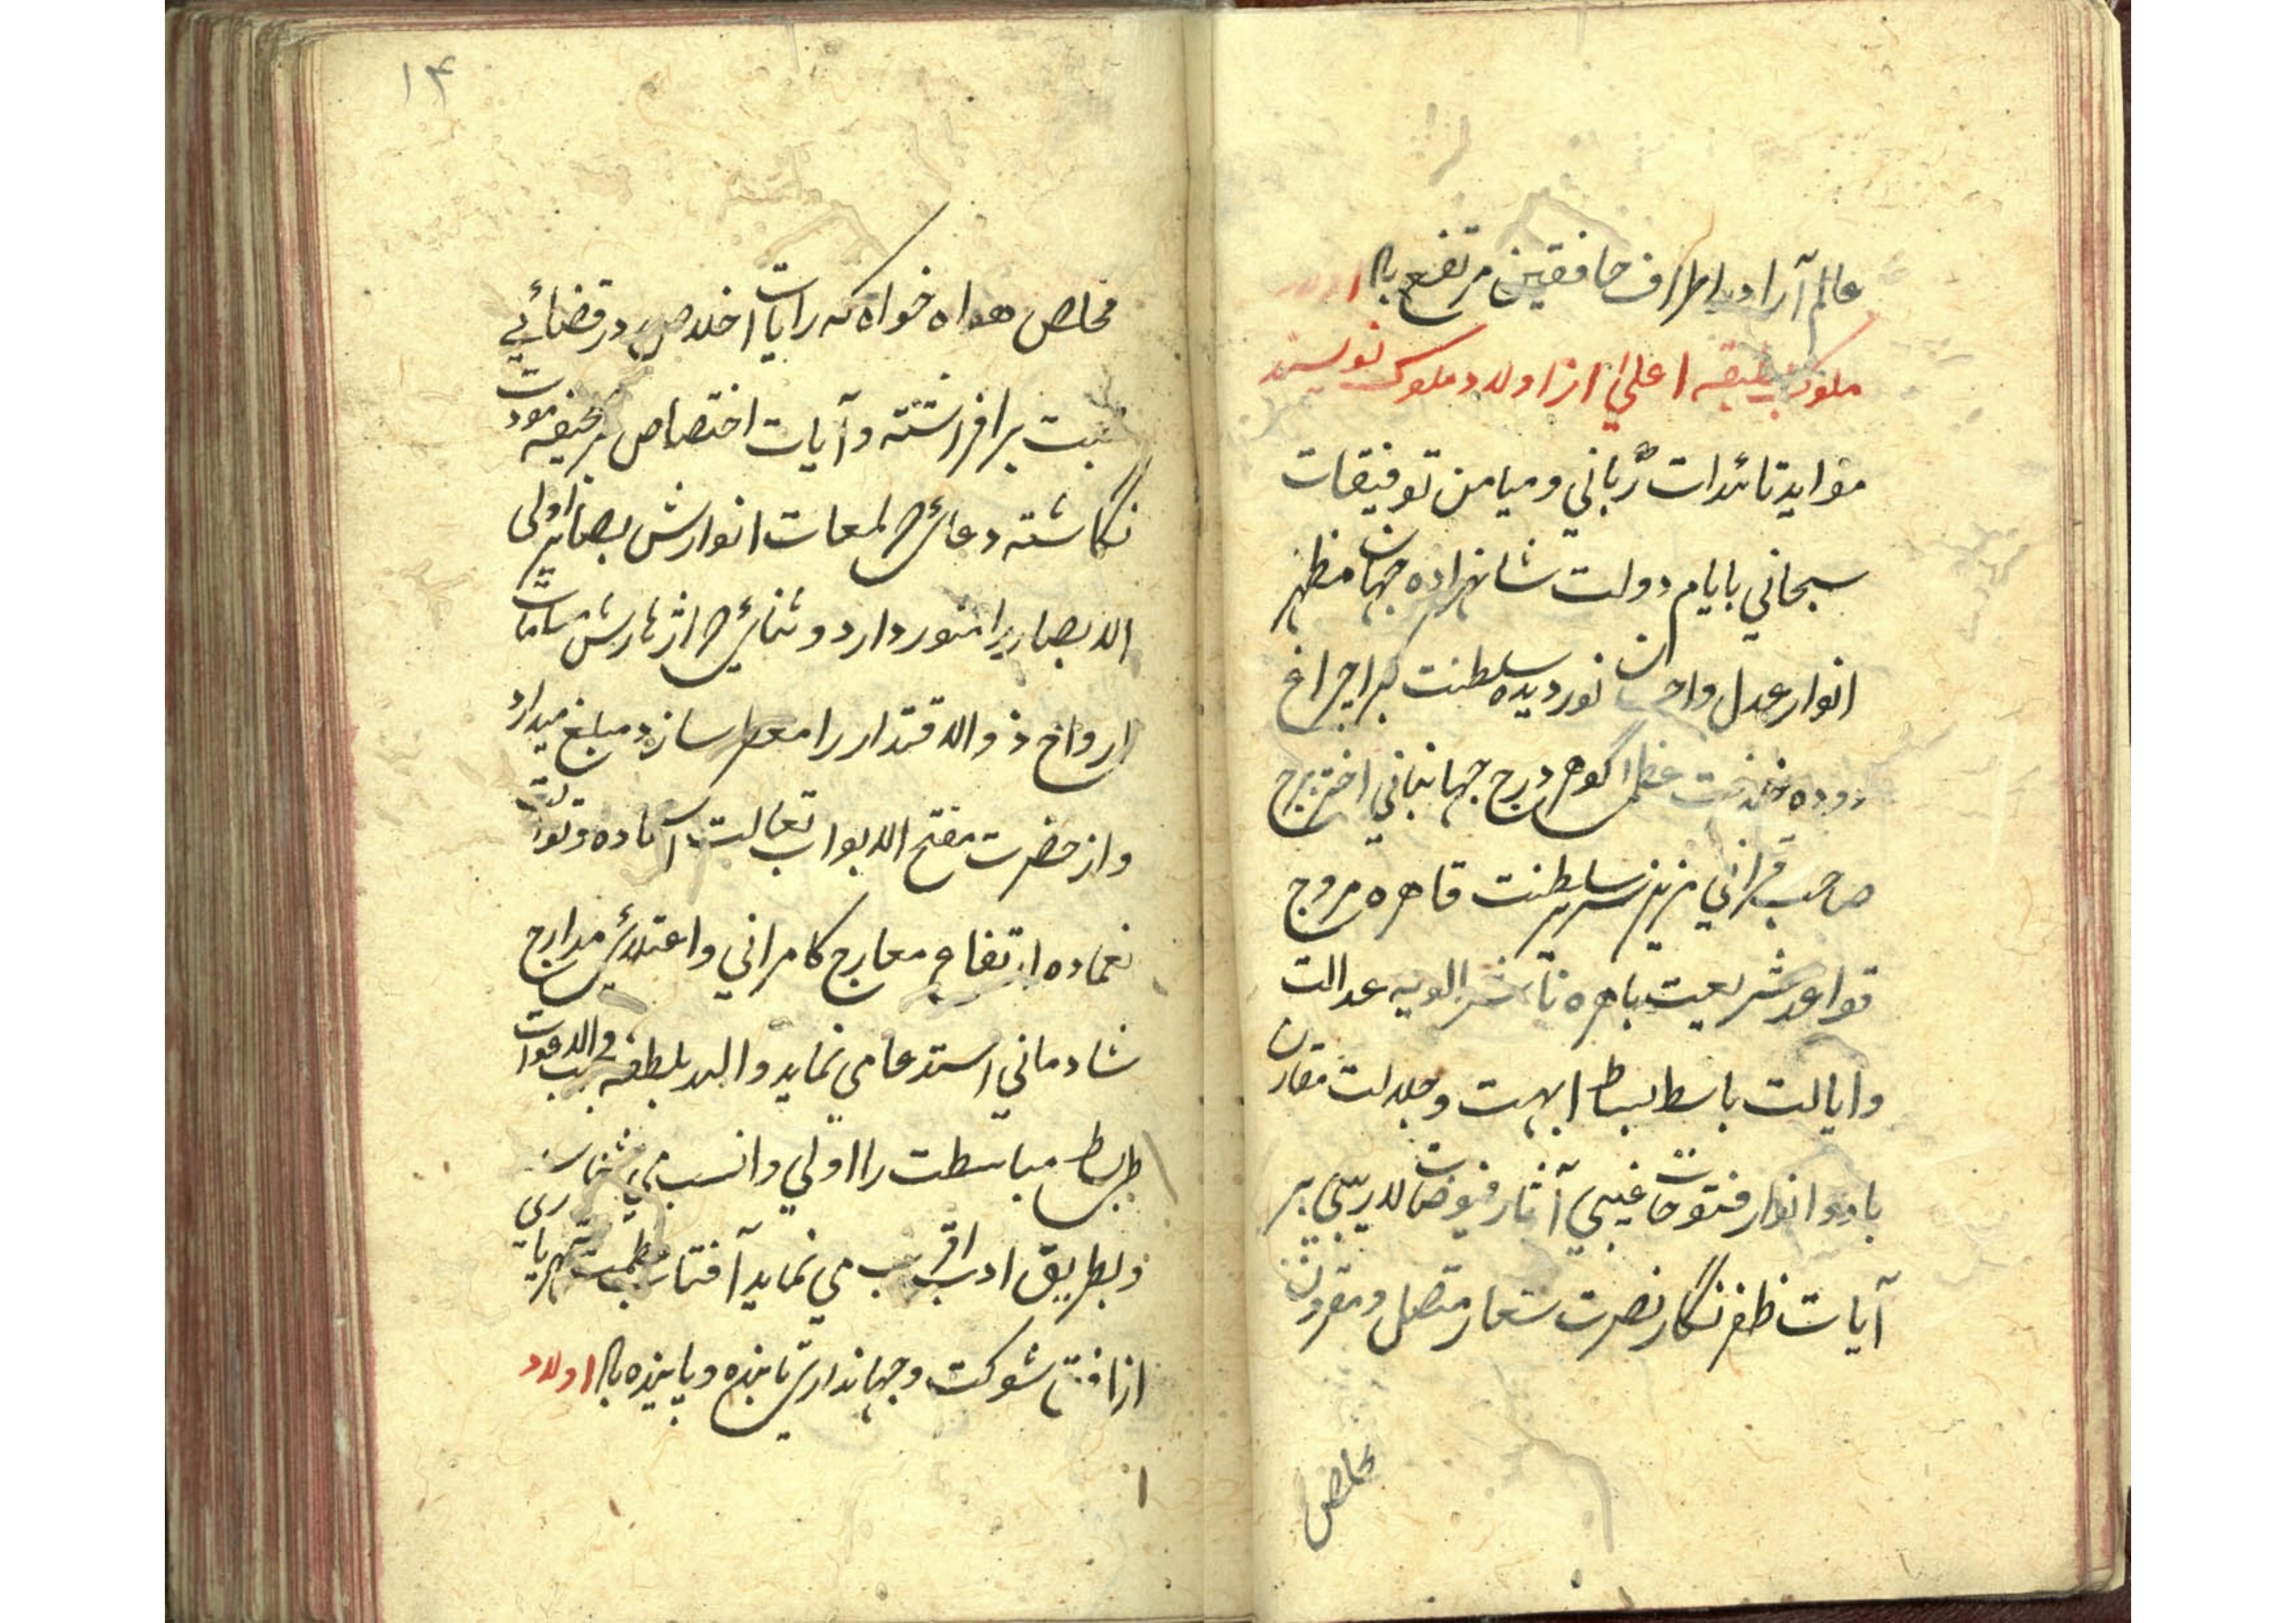 عالم آرا در اطراف خافقین مرتفع باد اولاد
ملوک بطبقه اعلی از اولاد ملوک نویسند
مؤاید تائدات ربّانی و میامن توفیقات
سبحانی بایام دولت شاهزاده جهان مظهر
انوار عدل و احسان نور دیده سلطنت کبرا چراغ
دوده خلافت عظمی گوهر درج جهانبانی اختر برج
صاحب قرانی مزین سریر سلطنت قاهره مروج
قواعد شریعت باهره ناشر الویه عدالت
و ایالت باسط بساط ابهت و جلالت مقارن
باد و انوار فتوحات غیبی آثار فیوضات لاریبی بر
آیات ظفر نگار نصرت شعار متصل و مقرون
مخلص
۱۴
مخلص هواه خواه که رایات اخلاص در فضائی
برافراشته و آیات اختصاص بر صحیفه مودت
نگاشته دعائی که لمعات انوارش بصائر اولی
الابصار را منور دارد و ثنائی که ازهارش مشامات
ارواح ذو الاقتدار را معطر سازد مبلغ میدارد
و از حضرت مفتح الابواب تعالت آلاده و توالت
نعماده ارتفاع معارج کامرانی و اعتلای مدارج
شادمانی استدعا می نماید و اله بلطفه مجیب الدعوات
طی بساط مباسطت را اولی و انسب می شمارد
و بطریق ادب اقرب می نماید آفتاب عظمت شهریاری
از افق شوکت و جهانداری تابنده و پاینده باد اولاد